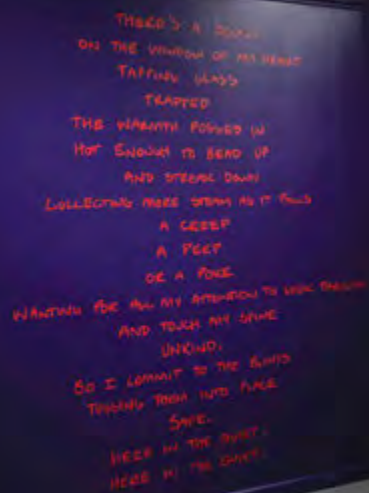 THERE'S A
ON THE WINDOW OF MY HEART
TAPPING GLASS
TRAPPED
THE WARMTH POURED IN
HOT ENOUGH TO BEAD UP
AND STREAK DOWN
COLLECTING MORE STEAM AS IT FALLS
A CREEP
A PEEP
OR A POKE
WANTING FOR ALL MY ATTENTION TO LOOK THROUGH
AND TOUCH MY SPINE
UNKIND.
SO I COMMIT TO THE BLINDS
THEM INTO PLACE
SAFE.
HERE IN THE QUIET.
HERE IN THE QUIET.